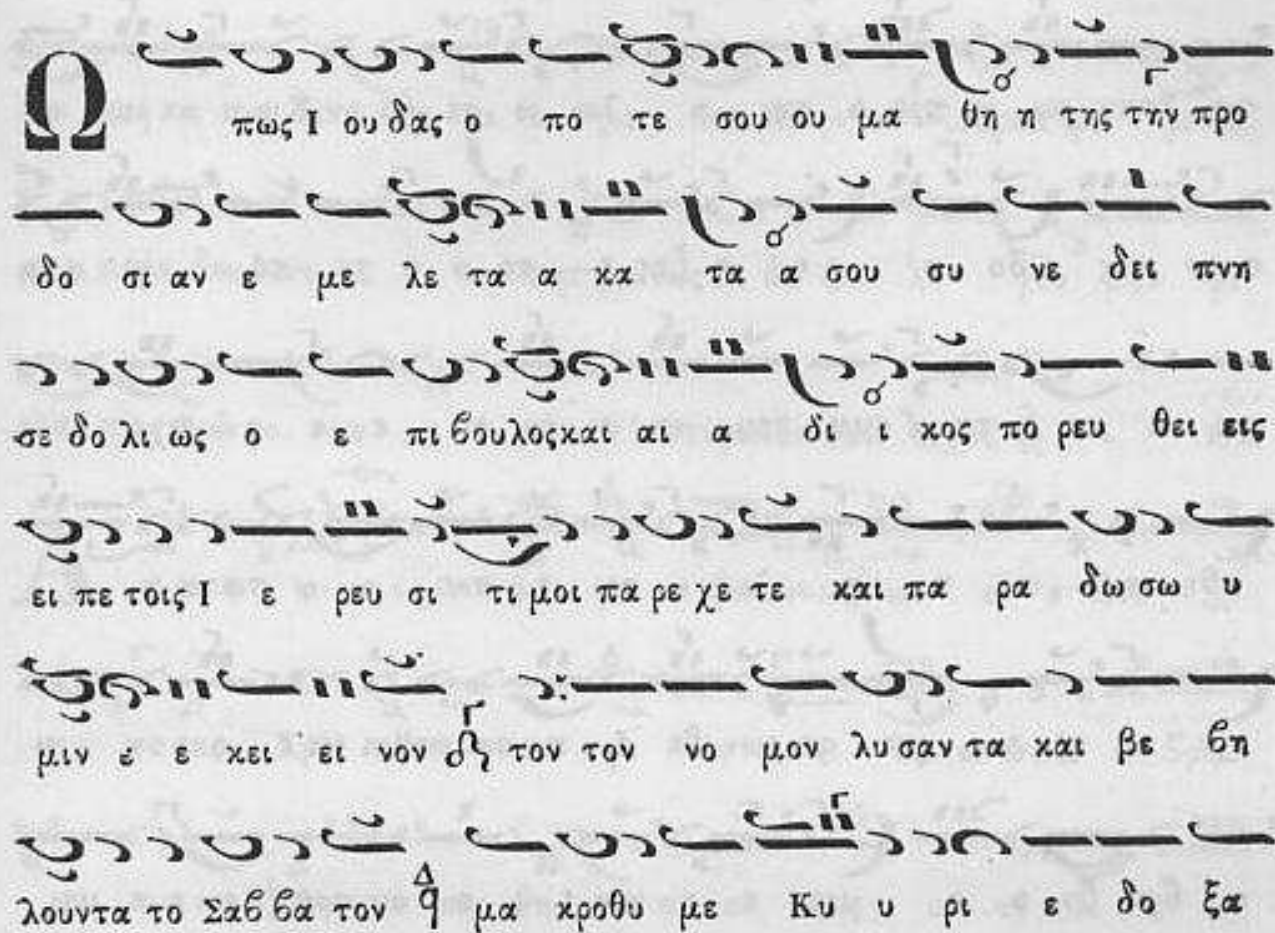 Ω πως Ι ου δας ο πο τε σου ου μα θη η της την προ
δο σι αν ε με λε τα α κα τα α σου συ νε δει πνη
σε δο λι ως ο ε πι βουλος και αι α δι ι κος πο ρευ θει εις
ει πε τοις Ι ε ρευ σι τι μοι πα ρε χε τε και πα ρα δω σω υ
μιν ε ε κει ει νον τον τον νο μον λυ σαν τα και βε βη
λουν τα το Σαβ βα τον Δ μα κροθυ με Κυ υ ρι ε δο ξα